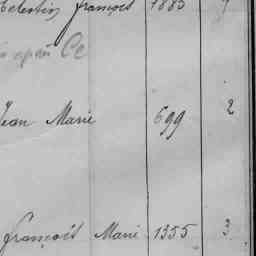 Celestin françois 1885
après Ce
Jean Marie 699 2
françois Marie 1355 3